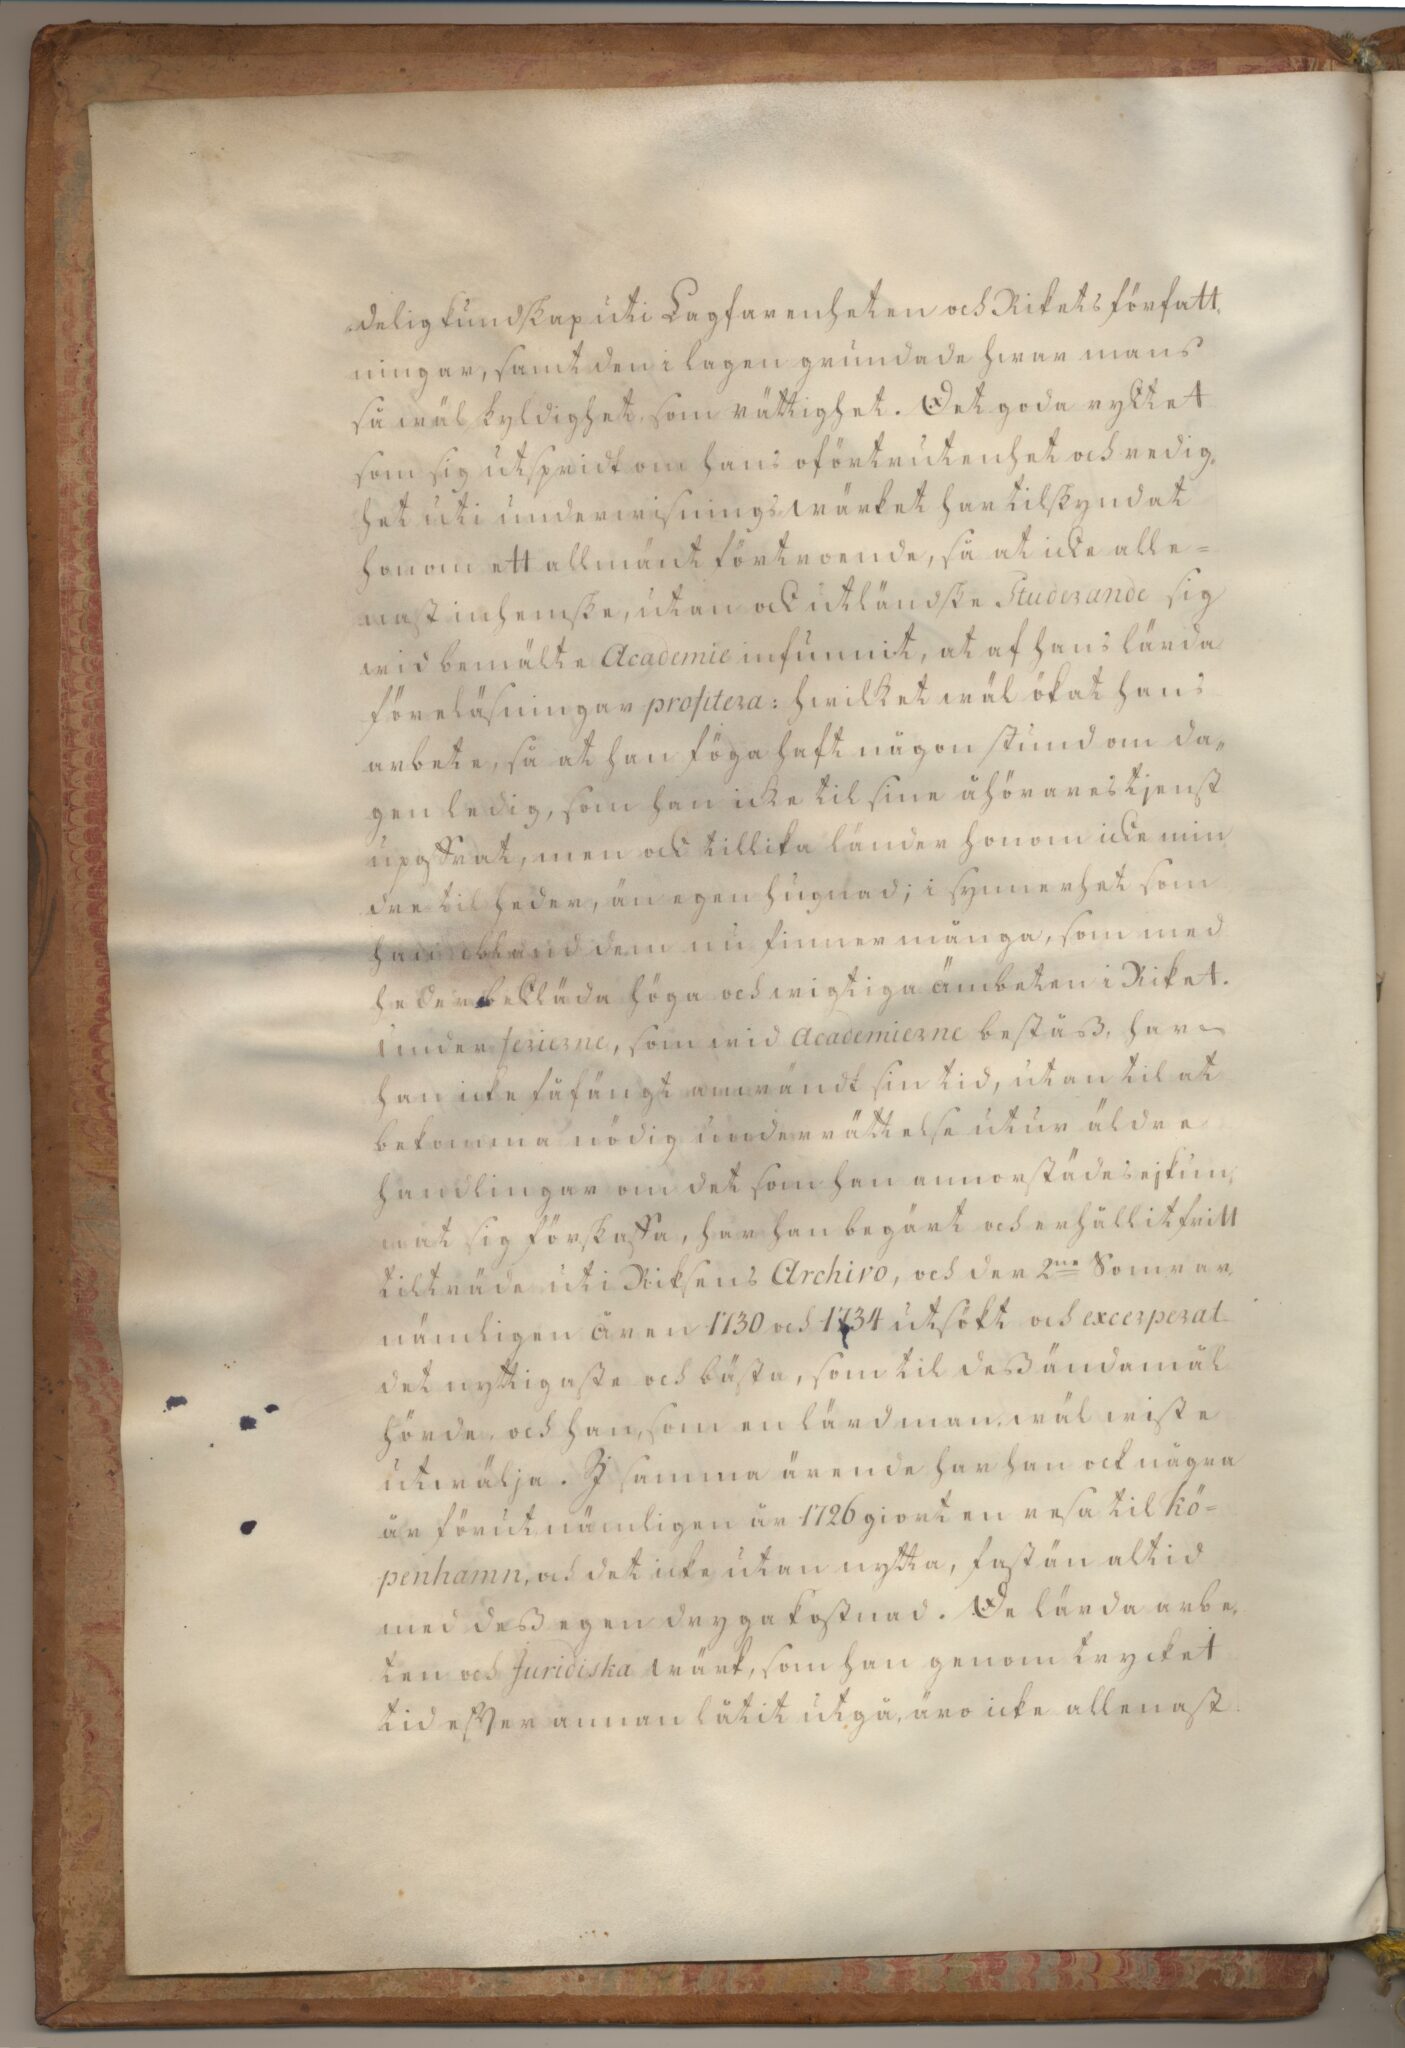 delig kundskap uti Lagfarenheten och Rikets författ,
ningar, samt den i lagen grundade hwar mans
så wäl skyldighet, som rättighet. Det goda ryktet
som sig utspridt om hans oförtrutenhet och redig,
het uti underwisnings wärket har tilskyndat
honom ett allmänt förtroende, så at icke alle=
nast inhemske, utan ock utländske Studerande sig
wid bemälte Academie infunnit, at af hans lärda
föreläsningar profitera: hwilket wäl ökat hans
arbete, så at han föga haft någon stund om da„
gen ledig, som han icke til sine åhörares tjenst
upoffrat, men ock tillika länder honom icke min
dre til heder, än egen hugnad; i synnerhet som
han ibland dem nu finner många, som med
heder bekläda höga och wigtiga ämbeten i Riket.
Under ferierne, som wid Academierne bestås, har
han icke fåfängt använd sin tid, utan til at
bekomma nödig underrättelse utur äldre
handlingar om det som han annorstädes ej kun,
nat sig förskaffa, har han begärt och erhållit fritt
tilträde uti Riksens Archivo, och der 2ne Somrar,
nämligen åren 1730 och 1734 utsökt och excerperat
det nyttigaste och bästa, som til deß ändamål
hörde, och han, som en lärd man, wäl wiste
utwälja. I samma ärende har han ock några
år förut nämligen år 1726 giort en resa til Kö=
penhamn, och det icke utan nytta, fast än altid
med deß egen dryga kostnad. De lärda arbe,
ten och Juridiska wärk, som han genom trycket
tid efter annan låtit utgå, äro icke allenast